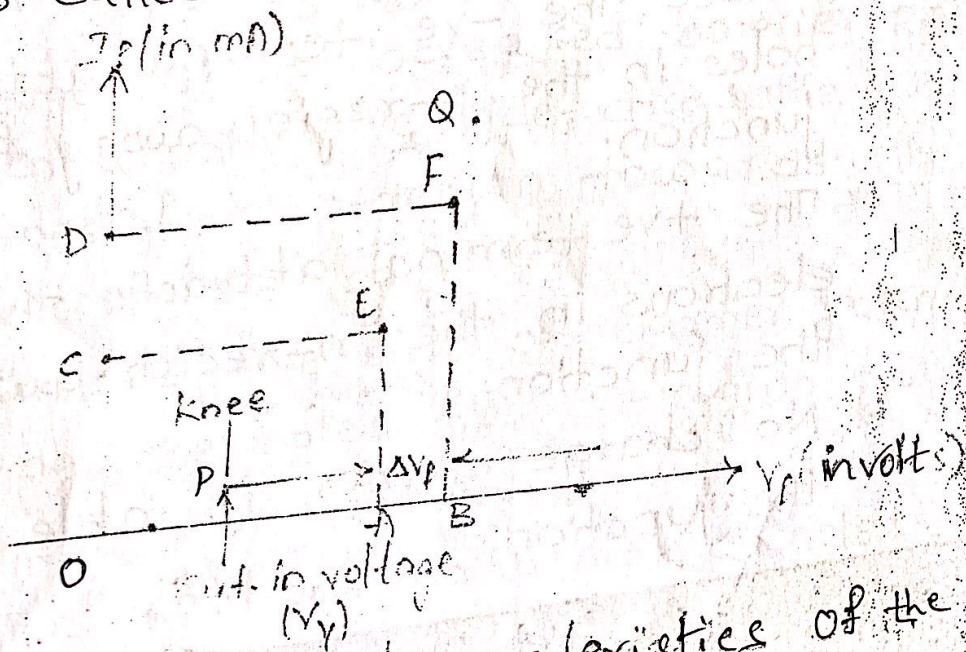 If (in mA)
Q
F
D
E
C
Knee
P
ΔVf
Vf (in volts)
A B
O
cut-in voltage
(Vγ)
of the